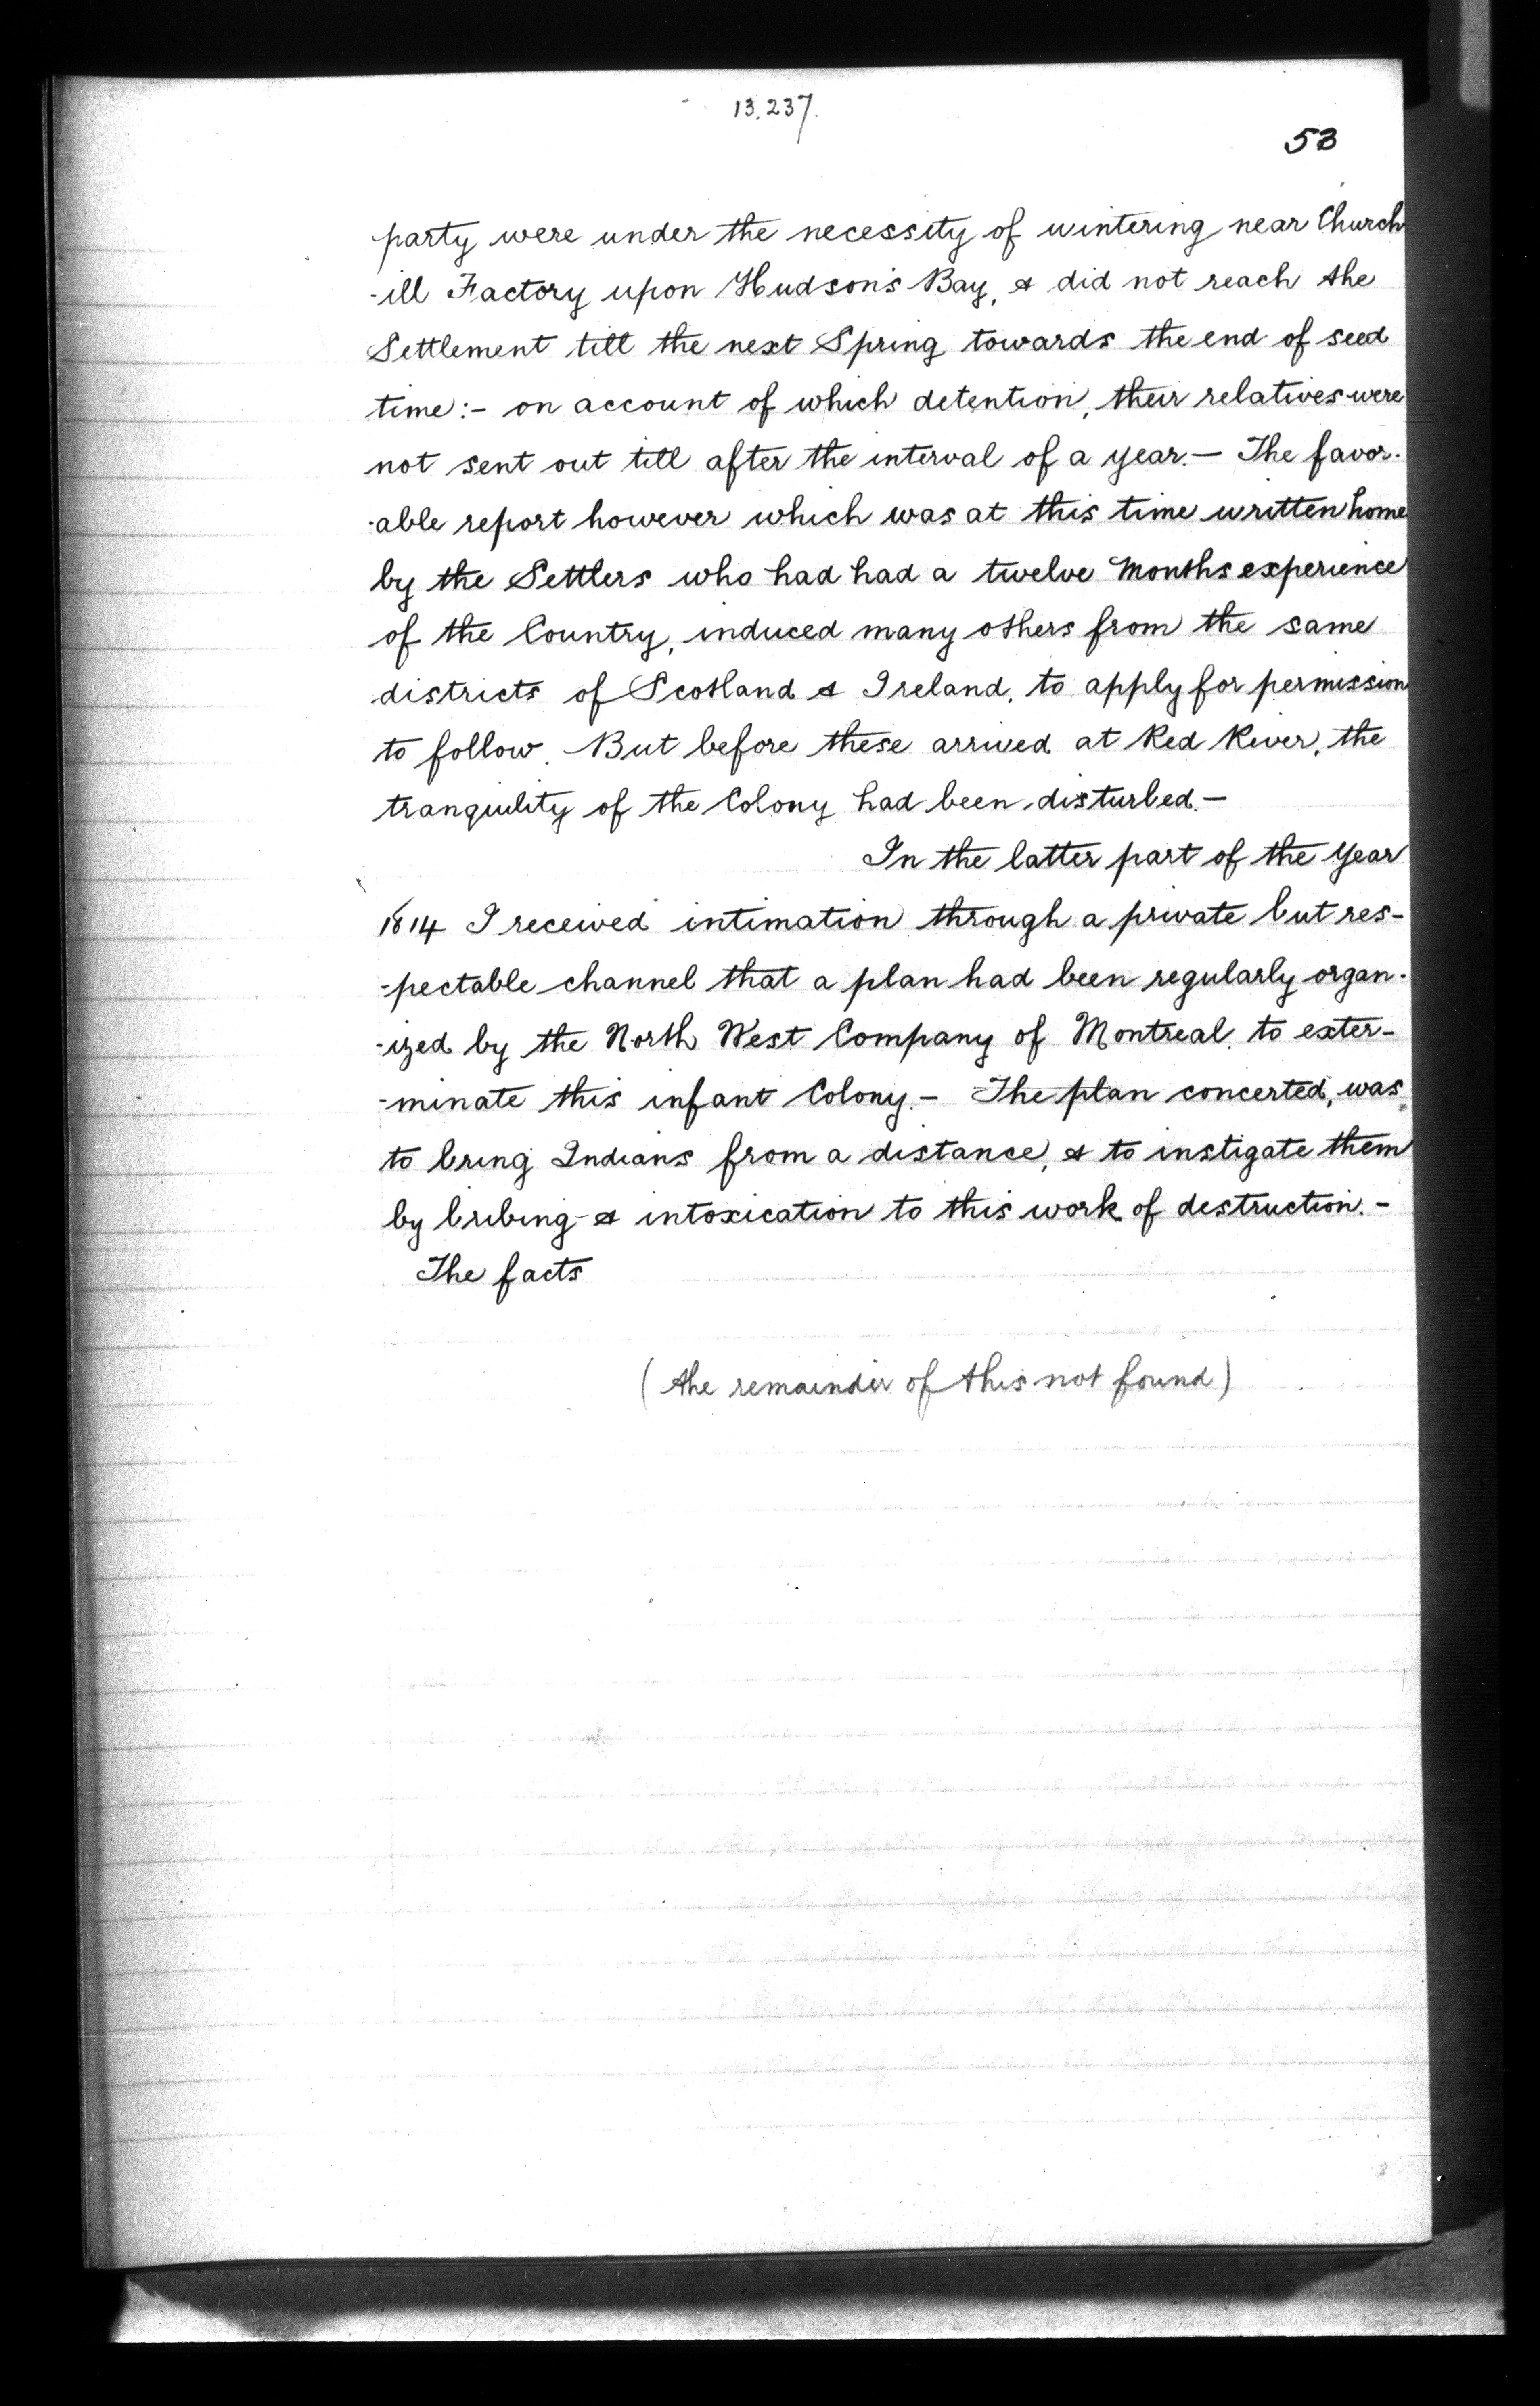 13,237.
53
party were under the necessity of wintering near Church
-ill Factory upon Hudson's Bay, & did not reach the
Settlement till the next Spring towards the end of seed
time:- on account of which detention, their relatives were
not sent out till after the interval of a year.— The favor-
-able report however which was at this time written home
by the Settlers who had had a twelve Months experience
of the Country, induced many others from the same
districts of Scotland & Ireland, to apply for permission
to follow. But before these arrived at Red River, the
tranquility of the Colony had been disturbed.—
In the latter part of the Year
1814 I received intimation through a private but res-
-pectable channel that a plan had been regularly organ-
-ized by the North West Company of Montreal, to exter-
-minate this infant Colony.— The plan concerted, was
to bring Indians from a distance, & to instigate them
by bribing & intoxication to this work of destruction.-
The facts
(the remainder of this not found)